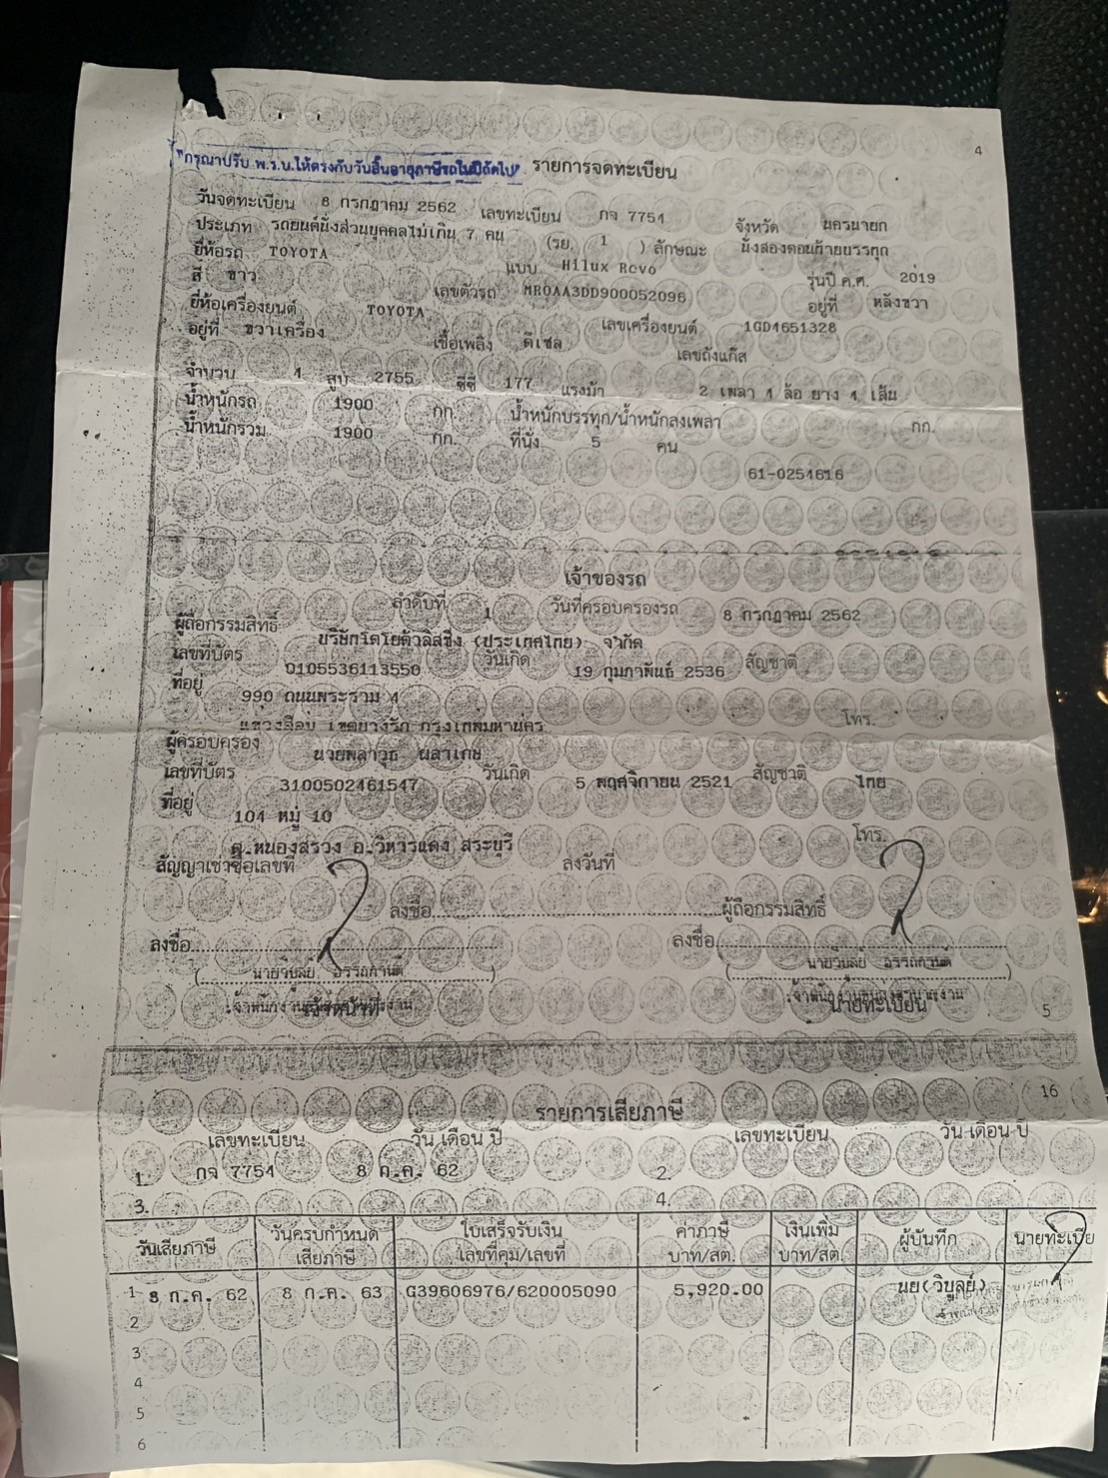 4
"กรุณาปรับ พ.ร.บ.ให้ตรงกับวันสิ้นอายุภาษีรถในปีถัดไป" รายการจดทะเบียน
วันจดทะเบียน 8 กรกฎาคม 2562 เลขทะเบียน กจ 7754 จังหวัด นครนายก
ประเภท รถยนต์นั่งส่วนบุคคลไม่เกิน 7 คน (รย. 1 ) ลักษณะ นั่งสองตอนท้ายบรรทุก
ยี่ห้อรถ TOYOTA แบบ Hilux Revo รุ่นปี ค.ศ. 2019
สี ขาว เลขตัวรถ MR0AA3DD900052096 อยู่ที่ หลังขวา
ยี่ห้อเครื่องยนต์ TOYOTA เลขเครื่องยนต์ 1GD4651328
อยู่ที่ ขวาเครื่อง เชื้อเพลิง ดีเซล เลขถังแก๊ส
จำนวน 4 สูบ 2755 ซีซี 177 แรงม้า 2 เพลา 4 ล้อ ยาง 4 เส้น
น้ำหนักรถ 1900 กก. น้ำหนักบรรทุก/น้ำหนักลงเพลา กก.
น้ำหนักรวม 1900 กก. ที่นั่ง 5 คน
61-0254616
เจ้าของรถ
ลำดับที่ 1 วันที่ครอบครองรถ 8 กรกฎาคม 2562
ผู้ถือกรรมสิทธิ์ บริษัทโตโยต้าลีสซิ่ง (ประเทศไทย) จำกัด
เลขที่บัตร 0105536113550 วันเกิด 19 กุมภาพันธ์ 2536 สัญชาติ
ที่อยู่ 990 ถนนพระราม 4
แขวงสีลม เขตบางรัก กรุงเทพมหานคร โทร.
ผู้ครอบครอง นายพลาวุธ
เลขที่บัตร 3100502461547 วันเกิด 5 พฤศจิกายน 2521 สัญชาติ ไทย
ที่อยู่ 104 หมู่ 10
ต.หนองสรวง อ.วิหารแดง สระบุรี โทร.
สัญญาเช่าซื้อเลขที่ ลงวันที่
ลงชื่อ ผู้ถือกรรมสิทธิ์
ลงชื่อ ลงชื่อ
( นายวิบูลย์ อรรถกานต์ ) ( นายวิบูลย์ อรรถกานต์ )
เจ้าหน้าที่ นายทะเบียน
5
16
รายการเสียภาษี
เลขทะเบียน วัน เดือน ปี เลขทะเบียน วัน เดือน ปี
1. กจ 7754 8 ก.ค. 62 2.
3. 4.
วันเสียภาษี วันครบกำหนดเสียภาษี ใบเสร็จรับเงินเลขที่คุม/เลขที่ ค่าภาษีบาท/สต. เงินเพิ่มบาท/สต. ผู้บันทึก นายทะเบีย
1 8 ก.ค. 62 8 ก.ค. 63 G39606976/620005090 5,920.00 นย(วิบูลย์)
2
3
4
5
6